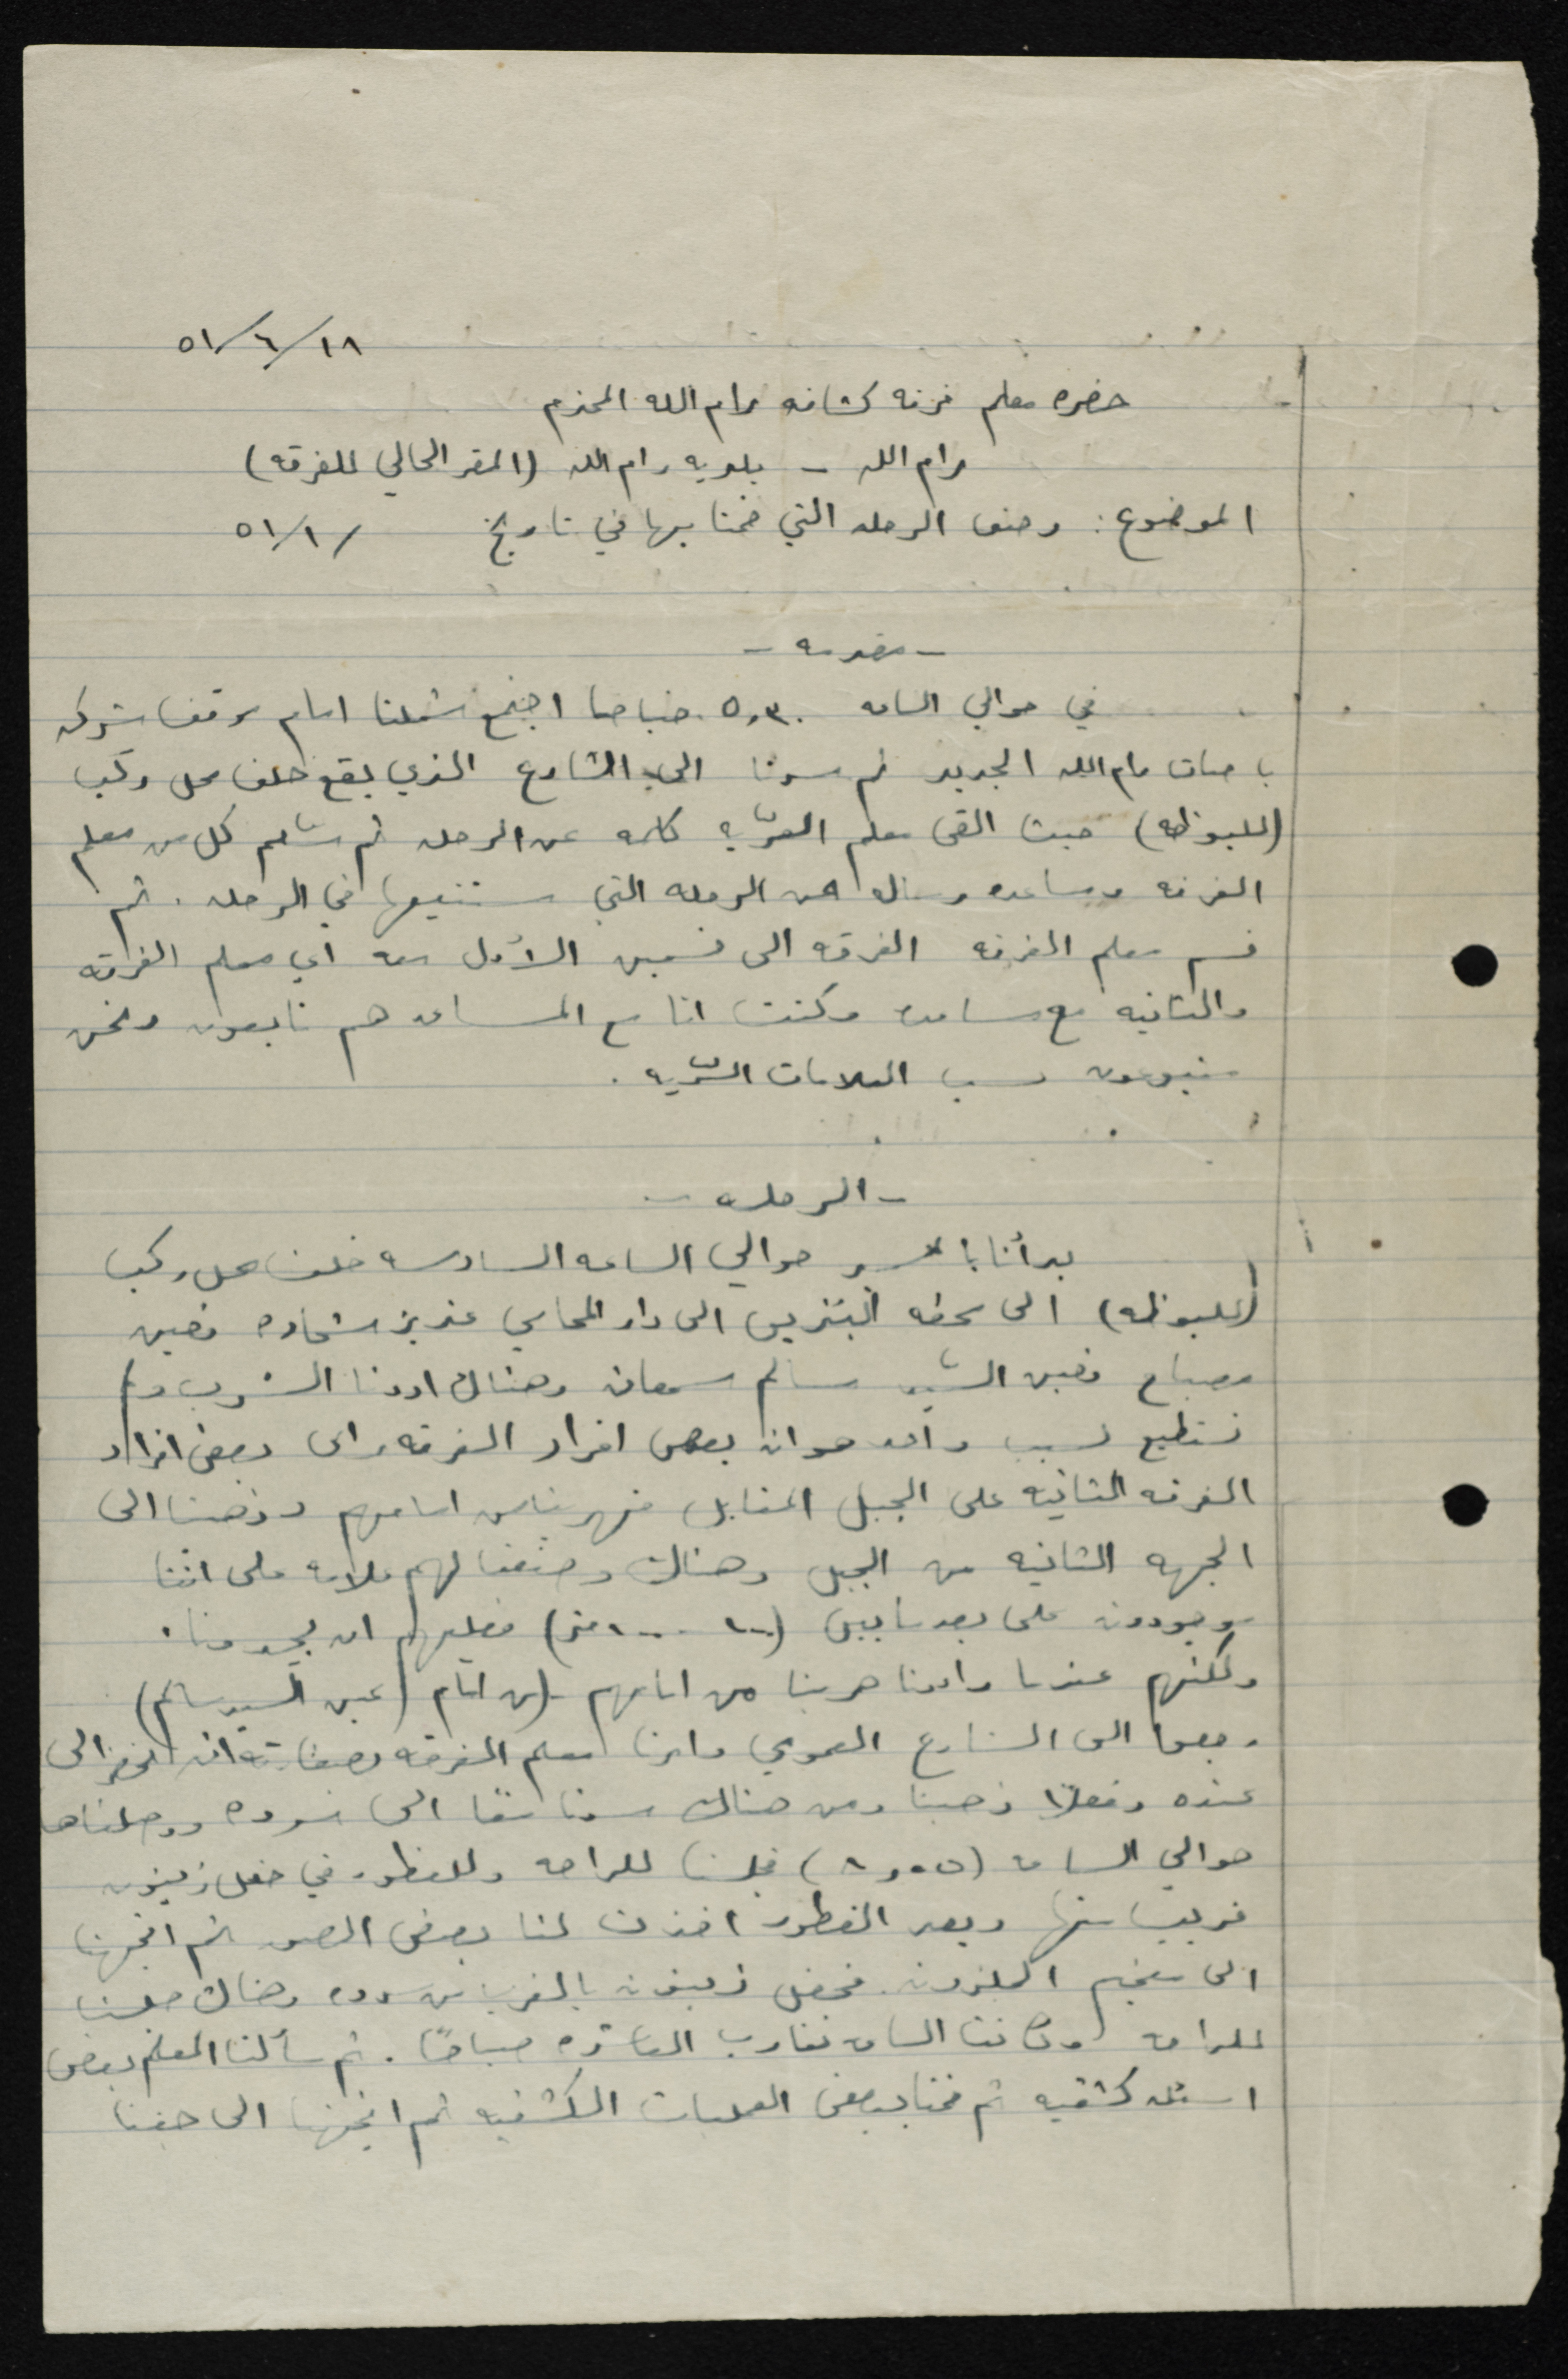 ٥١/٦/١٨
حضره معلم فرقه كشافه رام الله المحترم
رام الله - بلديه رام الله (المقر الحالي للفرقه)
الموضوع: وصف الرحله التي قمنا بها في تاريخ / ٥١/١
- مقدمه -
في حوالي الساعه ٥،٣٠ صباحا اجتمع شملنا امام موقف شركه
باصات رام الله الجديد ثم سرنا الى الشارع الذي يقع خلف محل ركب
(للبوظه) حيث القى معلم الفرقه كلمه عن الرحله ثم سلم كل من معلم
الفرقه ومساعده رساله عن الرحله التي سنتبعها في الرحله. ثم
قسم معلم الفرقه الفرقه الى قسمين الأول معه اي معلم الفرقه
والثانيه مع مساعده وكنت انا مع المساعد هم تابعون ونحن
متبوعون حسب العلامات السريه.
- الرحله -
بدأنا بالسير حوالي الساعه السادسه خلف محل ركب
(للبوظه) الى محطه البنزين الى دار المحامي عزيز شحاده فعين
مصباح فعين السيد سالم سمعان وهناك اردنا الشرب ولم
نستطيع لسبب واحد هو ان بعض افراد الفرقه راى بعض افراد
الفرقه الثانيه على الجبل المقابل فهربنا من امامهم وذهبنا الى
الجهه الثانيه من الجبل وهناك وضعنا لهم علامه على اننا
موجودون على بعد ما بين (١٠٠ - ١٠٠٠ متر) فعليهم ان يجدونا.
ولكنهم عندما رأونا هربنا من امامهم (من امام عين السيد سالم)
رجعوا الى الشارع العمومي وامرنا معلم الفرقه بصفارته ان نحضر الى
عنده وفعلاً ذهبنا ومن هناك سرنا معًا الى سرده ووصلناها
حوالي الساعه فجلسنا للراحه وللفطور في حقل زيتون
قريب منها وبعد الفطور اخذت لنا بعض الصور ثم اتجهنا
الى مخيم الجلزون. فحقل زيتون بالقرب من سرده وهناك جلسنا
للراحه وكانت الساعه تقارب العاشره صباحًا. ثم سألنا المعلم بعض
اسئله كشفيه ثم قمنا ببعض العمليات الكشفيه ثم اتجهنا الى جفنا